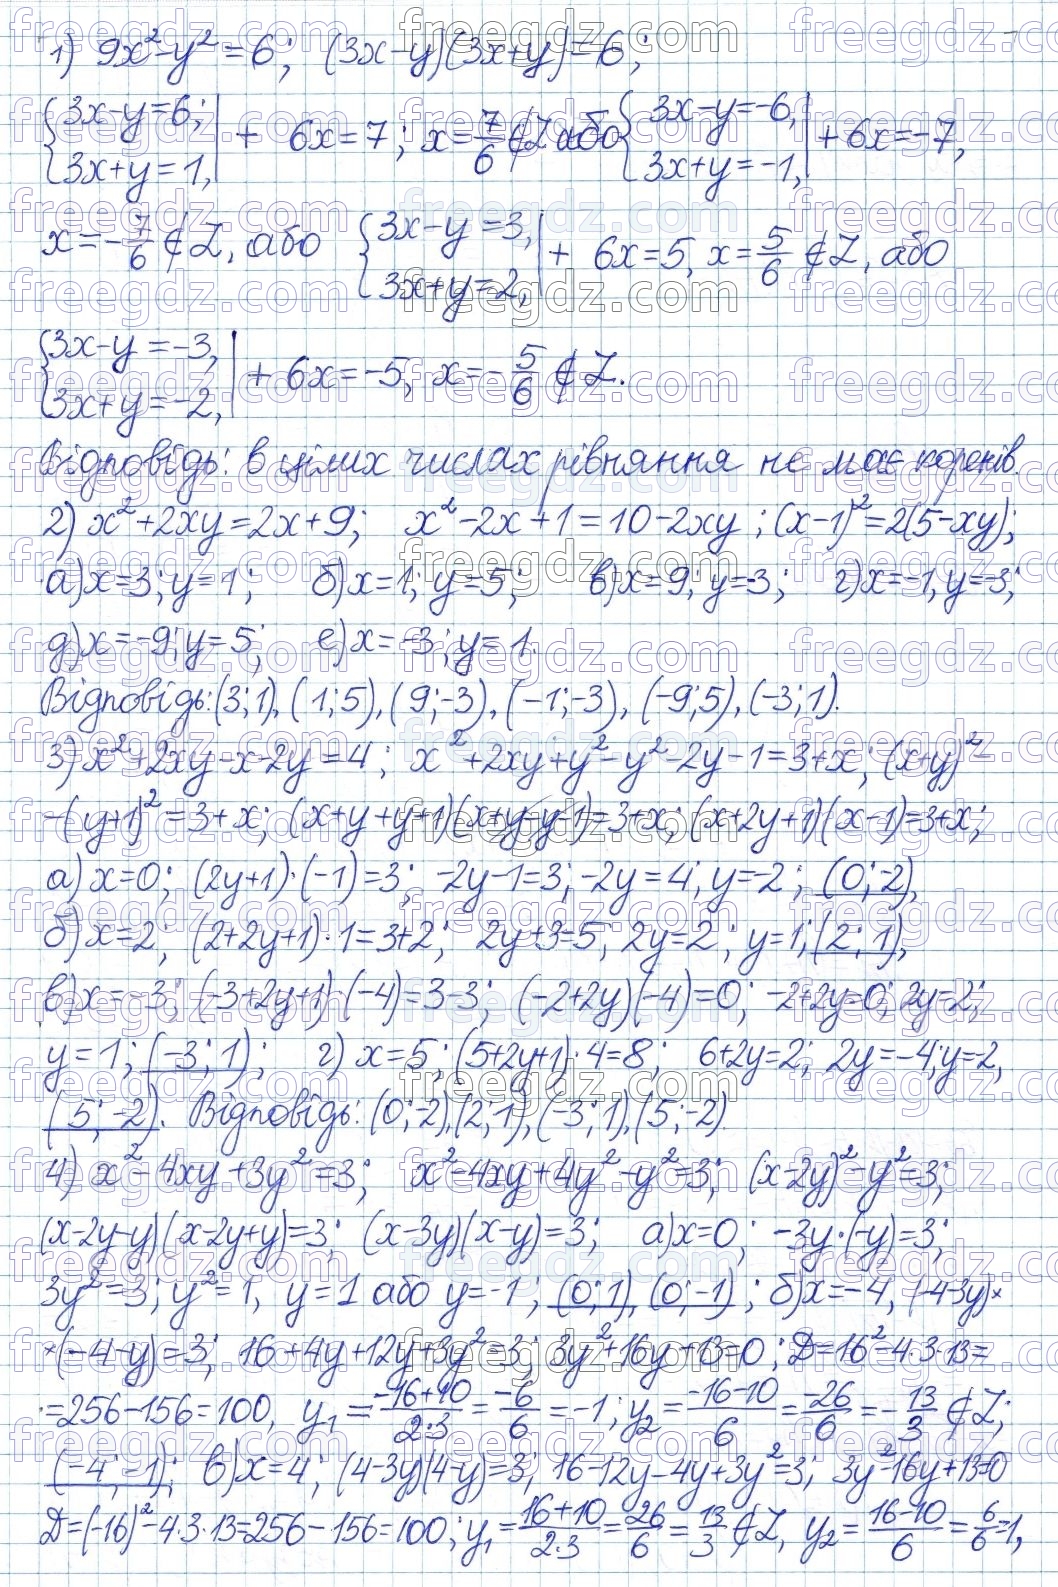 1) 9x²-y²=6; (3x-y)(3x+y)=6;
{3x-y=6; 3x+y=1,| + 6x=7; x=7/6 ∉Z або {3x-y=-6, 3x+y=-1,| +6x=-7,
x=-7/6 ∉Z, або {3x-y=3, 3x+y=2,| + 6x=5, x=5/6 ∉Z, або
{3x-y=-3, 3x+y=-2,| + 6x=-5, x=-5/6 ∉Z.
Відповідь: в цілих числах рівняння не має коренів.
2) x²+2xy=2x+9; x²-2x+1=10-2xy; (x-1)²=2(5-xy);
а) x=3; y=1; б) x=1; y=5; в) x=9; y=-3; г) x=-1, y=-3;
д) x=-9; y=5; е) x=-3; y=1.
Відповідь: (3;1), (1;5), (9;-3), (-1;-3), (-9;5), (-3;1).
3) x²+2xy-x-2y=4; x²+2xy+y²-y²-2y-1=3+x; (x+y)²
-(y+1)²=3+x; (x+y+y+1)(x+y-y-1)=3+x; (x+2y+1)(x-1)=3+x;
а) x=0; (2y+1)·(-1)=3; -2y-1=3; -2y=4; y=-2; (0;-2),
б) x=2; (2+2y+1)·1=3+2; 2y+3=5, 2y=2; y=1; (2;1),
в) x=-3; (-3+2y+1)·(-4)=3-3; (-2+2y)(-4)=0; -2+2y=0; 2y=2;
y=1; (-3;1); г) x=5; (5+2y+1)·4=8; 6+2y=2; 2y=-4; y=2,
(5;-2). Відповідь: (0;-2), (2;1), (-3;1), (5;-2).
4) x²-4xy+3y²=3; x²-4xy+4y²-y²=3; (x-2y)²-y²=3;
(x-2y-y)(x-2y+y)=3; (x-3y)(x-y)=3; а) x=0; -3y·(-y)=3;
3y²=3; y²=1, y=1 або y=-1; (0;1), (0;-1); б) x=-4, (-4-3y)×
×(-4-y)=3; 16+4y+12y+3y²=3; 3y²+16y+13=0; D=16²-4·3·13=
=256-156=100, y₁=(-16+10)/(2·3)=-6/6=-1; y₂=(-16-10)/6=-26/6=-13/3 ∉Z;
(-4;-1); в) x=4; (4-3y)(4-y)=3; 16-12y-4y+3y²=3; 3y²-16y+13=0
D=(-16)²-4·3·13=256-156=100; y₁=(16+10)/(2·3)=26/6=13/3 ∉Z, y₂=(16-10)/6=6/6=1,